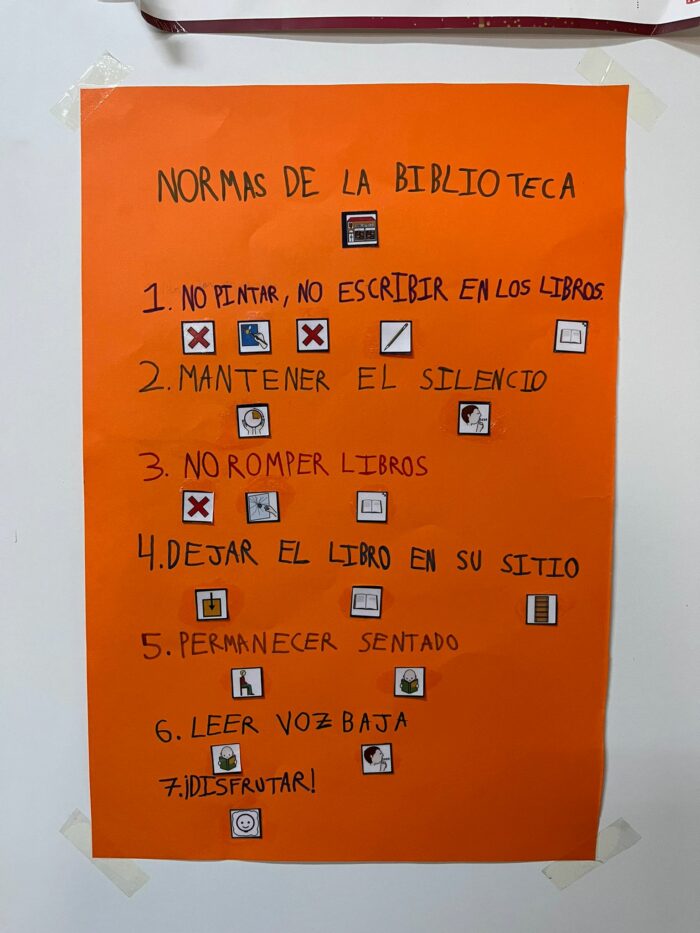 NORMAS DE LA BIBLIOTECA
1. NO PINTAR, NO ESCRIBIR EN LOS LIBROS.
2. MANTENER EL SILENCIO
3. NO ROMPER LIBROS
4. DEJAR EL LIBRO EN SU SITIO
5. PERMANECER SENTADO
6. LEER VOZ BAJA
7. ¡DISFRUTAR!